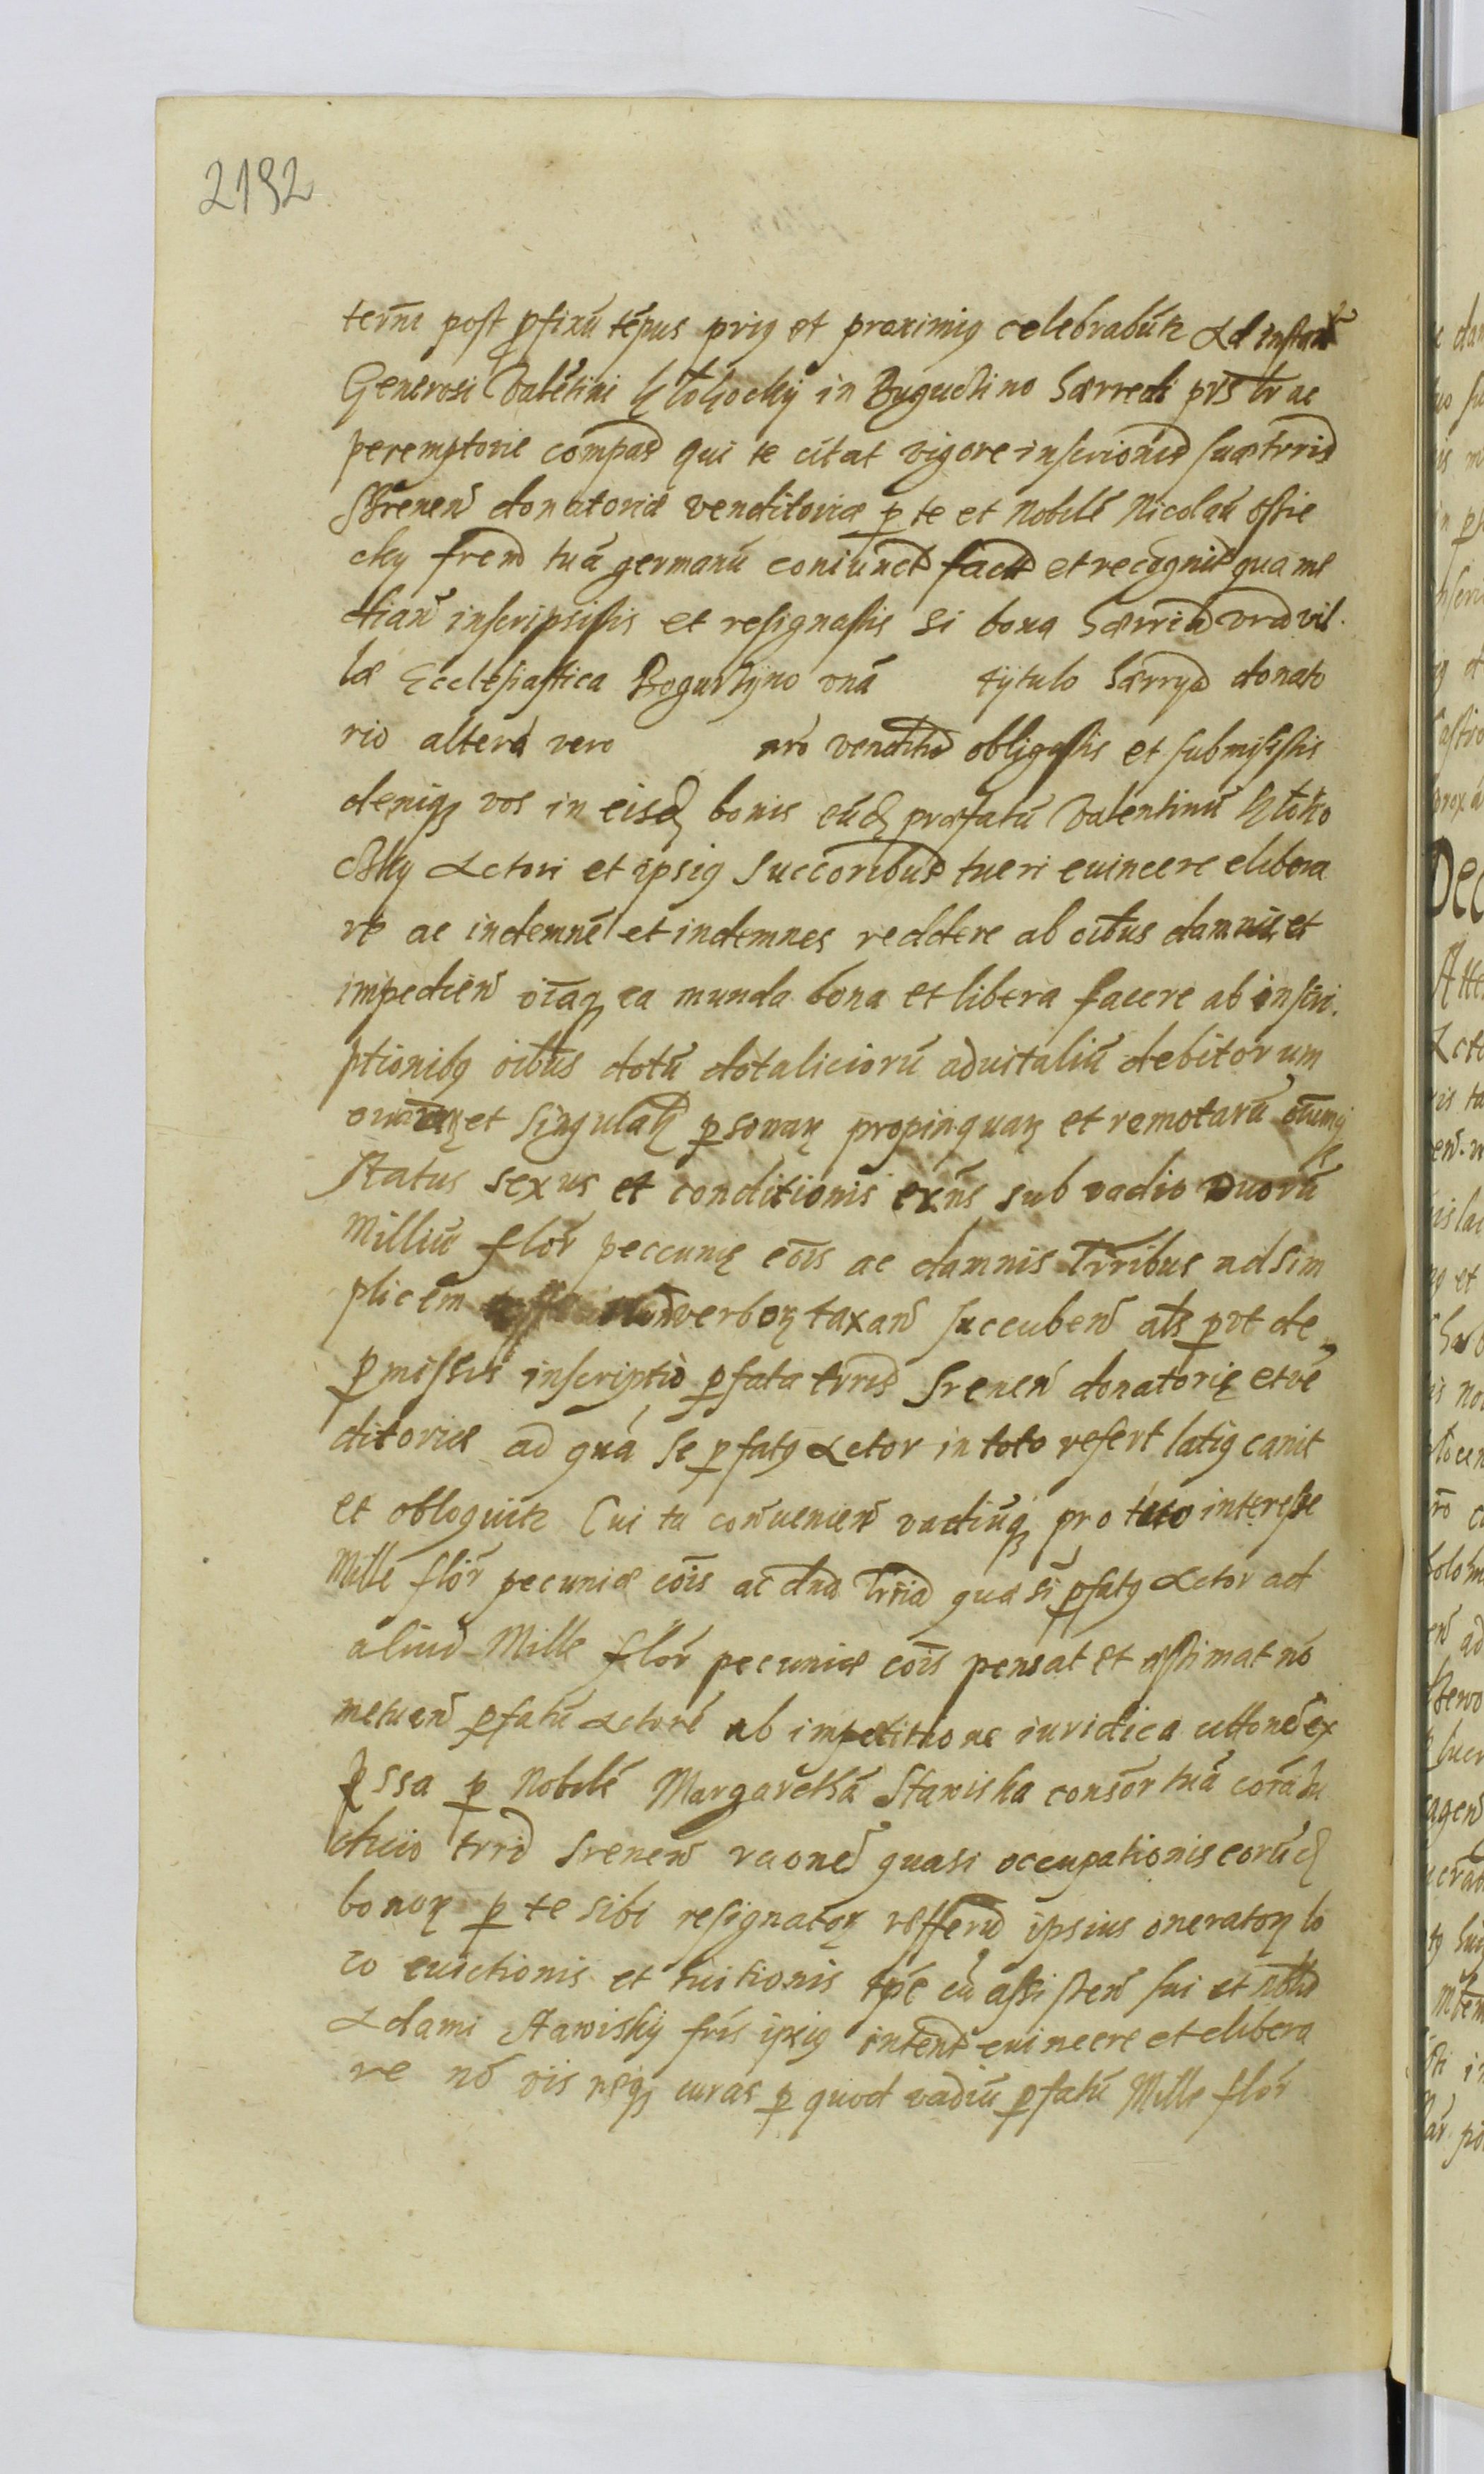 2192
term̄ post p̱fixū tēpus priꝯ et proximiꝯ celebrabūtr Ad instan
Generosi Valētini Klokoczky in Bugudtino hærredi prs tr ac
peremptorie compas qui te citat vigore inscrionis suæ trris
Srenen̄ donatoriæ venditoriæ p̱ te et Nobilē Nicolaū
cky frem tuā germanū coniunct fact et recognit qua me
dian̄ inscripsistis et resignastis si bona hærrid vrā vil
læ Ecclesiastica Bogurtÿno vnā tÿtulo hærryd donato
rio alterā vero nrō venditio obligastis et submisistis
deniqꝫ vos in eisdꝫ bonis eūdꝫ præfatū Valentinū Kloko
czky Actori et ipsiꝯ succoribus tueri euincere elibera
re ac indemnē et indemnes reddere ab oībus damnis et
impedien̄ oīaqꝫ ea munda bona et libera facere ab inscri
ptionibꝯ oībus dotū dotalicioru aduitaliū debitorum
et singulaꝝ p̱sonaꝝ propinquaꝝ et remotarū
status sexus et conditionis exn̄s sub vadio Duorū
Milliū flor̄ peccuniæ cōis ac damnis trribus ad sim
plicem verboꝝ taxan̄ succuben̄ als p̱ut de
p̱missis inscriptio p̱fata trris Srenen̄ donatoriæ et vē
ditoriæ ad quā se p̱fatꝯ Actor in toto refert latiꝯ canit
et obloquitr Cui tu conuenien̄ vadiūqꝫ pro toto interesse
Mille flor̄ pecuniæ cōis ac dna trria quæ si p̱fatꝯ Actor ad
aliud Mille flor̄ pecuniæ cōis pensat et æstimat nō
metuen̄ p̱fatū Actorē ab impetitione iuridica
p̱ssa p̱ Nobilē Margarethā Stawiska consor̄ tuā corā Ju
dicio trrid Srenen̄ raone quasi occupationis eorūdꝫ
bonoꝝ p̱ te sibi resignatoꝝ refferd ipsius oneratoꝝ lo
co euictionis et tuitionis tpē cū assisten̄ sui et nobil
Adami Stawisky fris ipsiꝯ intent euincere et elibera
re nō vis neqꝫ curas p̱ quod vadiū p̱fatū Mille flor̄